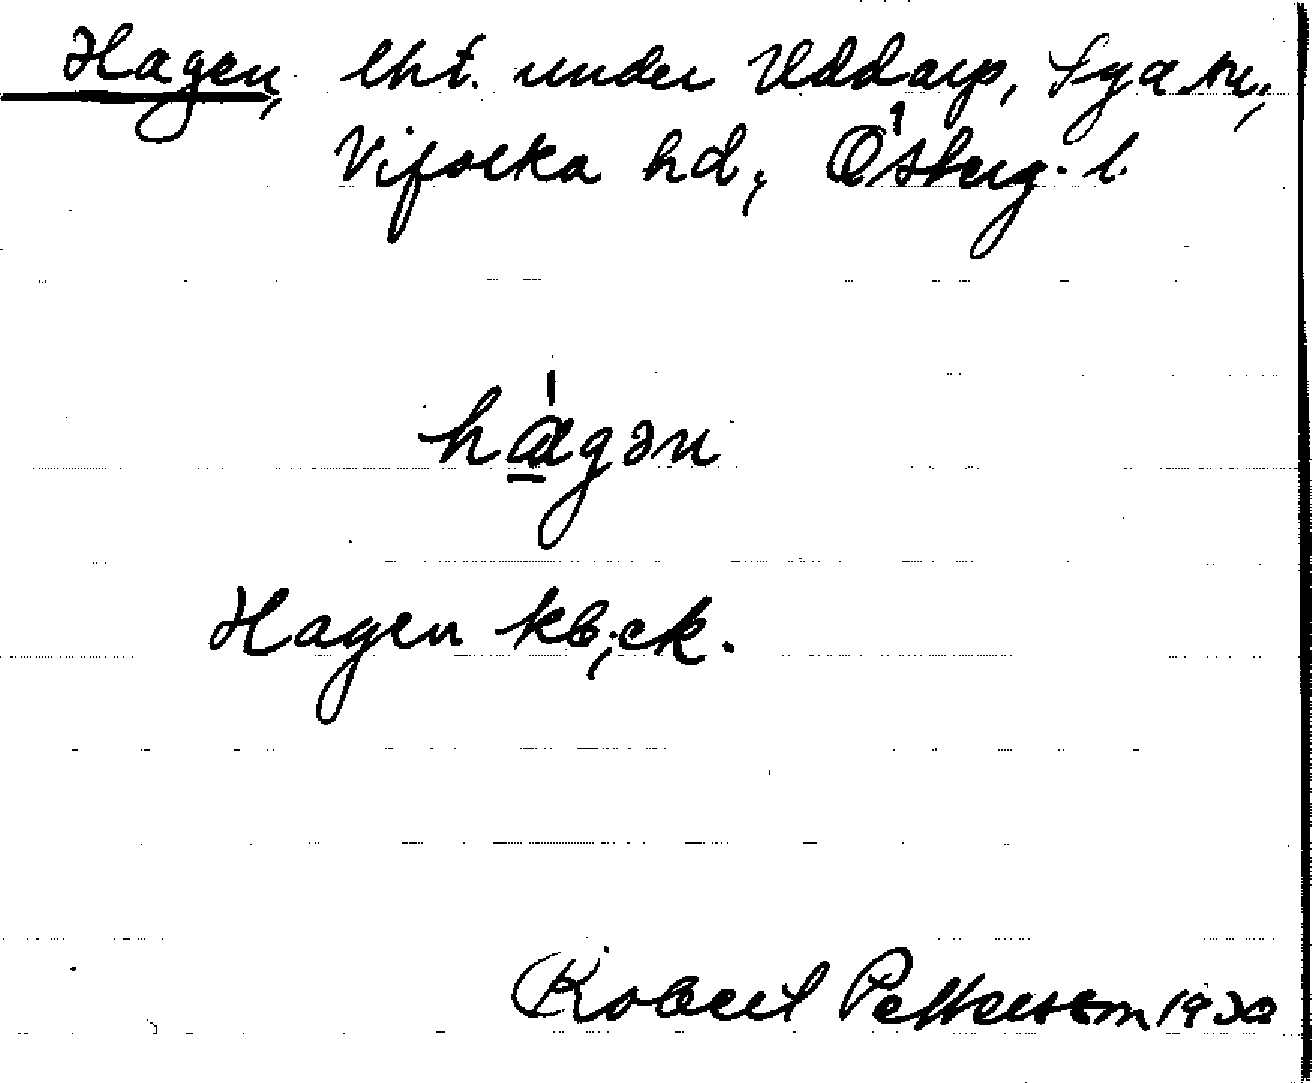 Hagen, lht. under Uddarp, Sya sn,
Vifolka hd, Österg. l.
hagən
Hagen kb, ek.
Robert Pettersson 1930